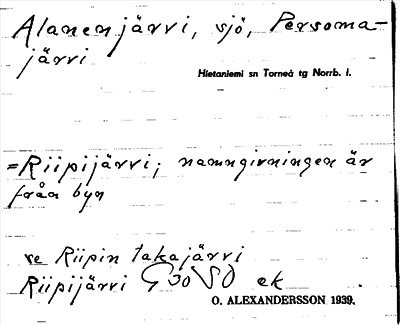 Alanenjärvi, sjö, Persoma-
järvi
Hietaniemi sn Torneå tg Norrb. l.
=Riipijärvi; namngivningen är
från byn
se Riipin takajärvi
Riipijärvi G30 SO ek
O. ALEXANDERSSON 1939.